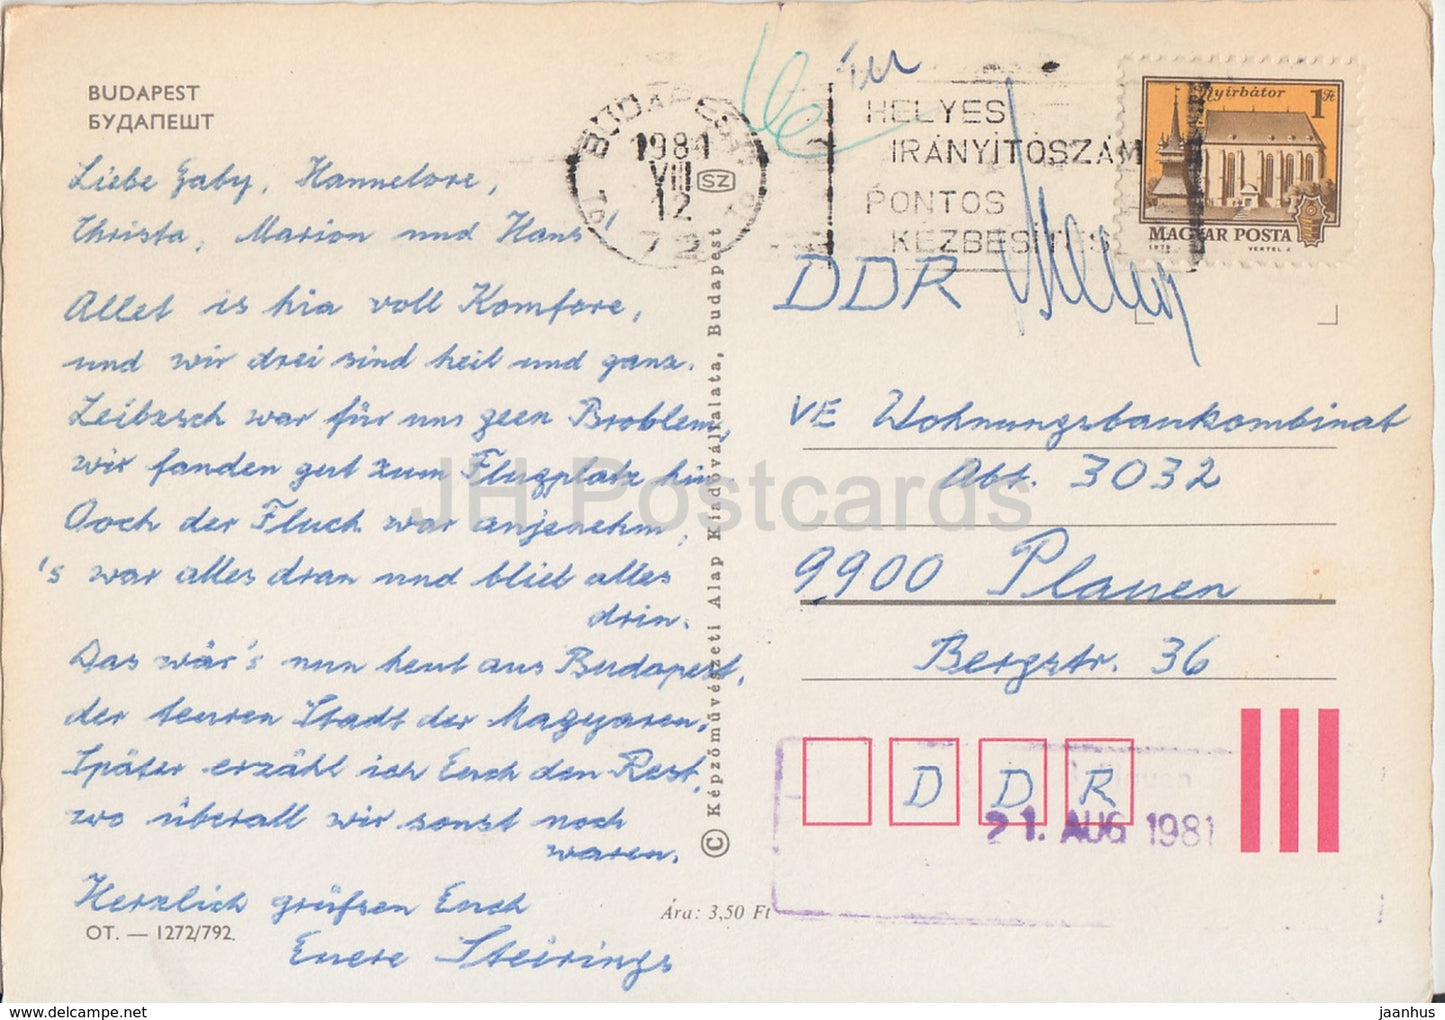 BUDAPEST
БУДАПЕШТ
Liebe Gaby, Hannelore,
Christa, Marion und Hans!
Allet is hia voll Komfore,
und wir drei sind heil und ganz.
Leibzsch war für uns geen Broblem,
wir fanden gut zum Flugplatz hin.
Ooch der Fluch war anjenehm,
's war alles dran und blieb alles
drin.
Das wär's nun heut aus Budapest,
der teuren Stadt der Magyaren.
Später erzähl ich Euch den Rest,
wo überall wir sonst noch
waren.
Herzlich grüßen Euch
Eure Steirings
OT. — 1272/792.
Ára: 3,50 Ft
© Képzőművészeti Alap Kiadóvállalata, Budapest
BUDAPEST
1981
VIII
SZ
12
72
HELYES
IRÁNYÍTÓSZÁM
PONTOS
KÉZBESÍTÉS
Nyírbátor
1 Ft
MAGYAR POSTA
1972
VERTEL J.
DDR
VE Wohnungsbaukombinat
Abt. 3032
9900 Plauen
Bergstr. 36
D D R
21. AUG 1981
JH Postcards
www.delcampe.net
jaanhus